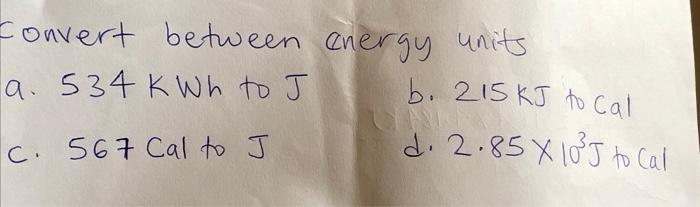 Convert between energy units
a. 534 KWh to J b. 215 KJ to Cal
c. 567 Cal to J d. 2.85 X 10³J to Cal